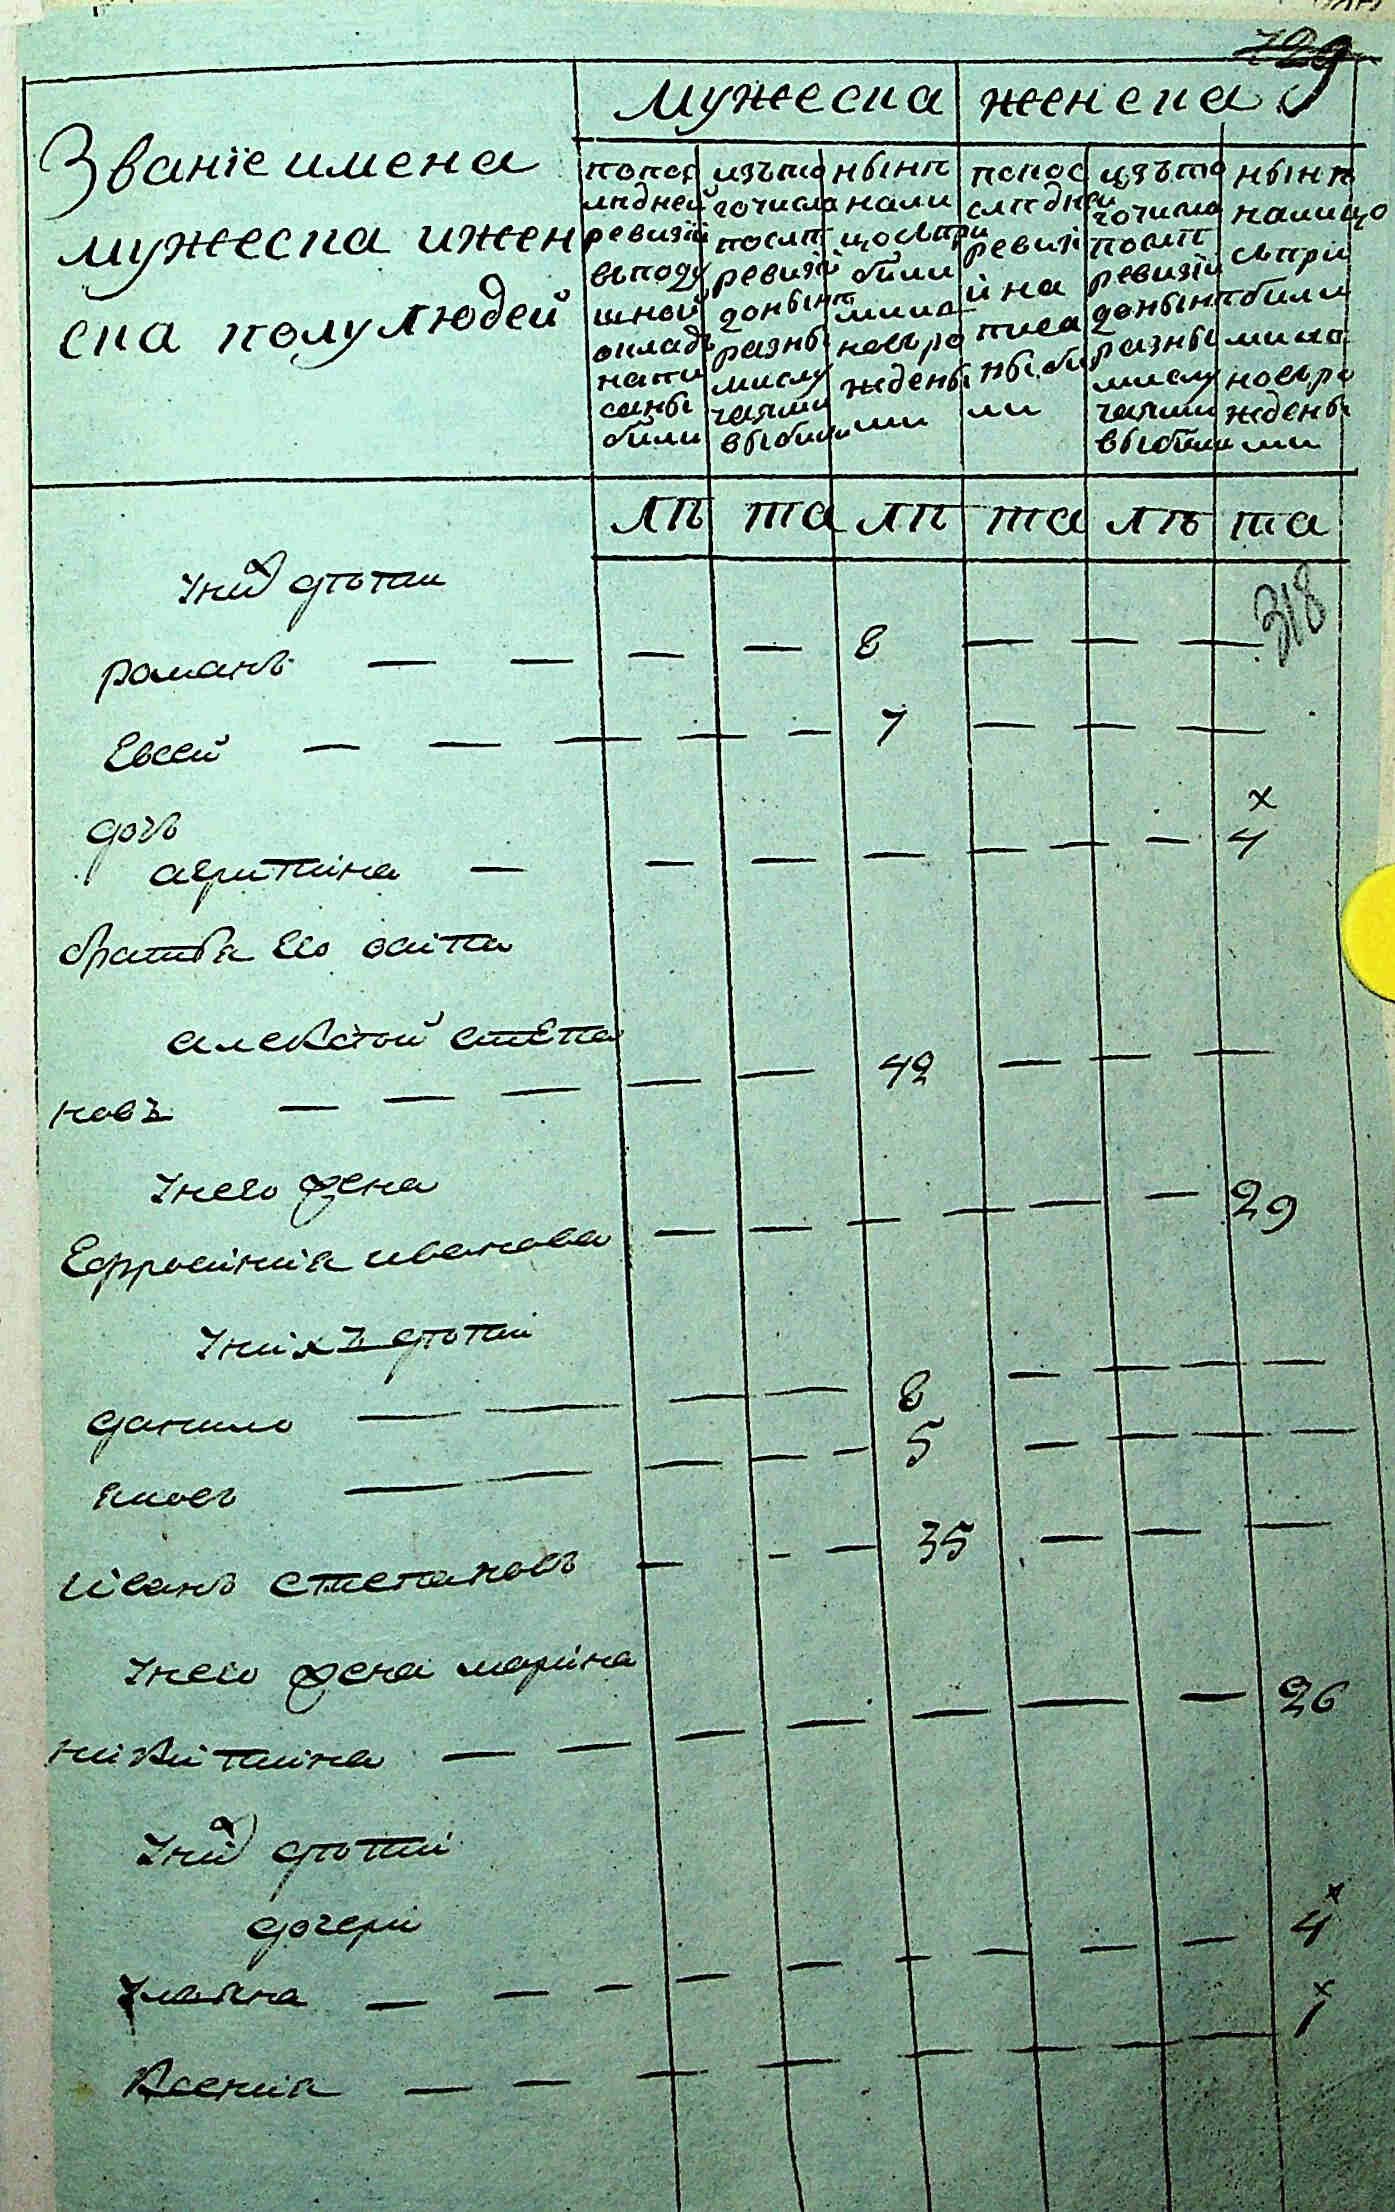 729
мужеска
женска
Званїе имена
мужеска ижен
ска полу людей
попос
лѣдней
ревизїи
вьподу
шной
окладъ
напи
саны
били
изъто
гочисла
послѣ
ревизїи
донынѣ
разны
мислу
чаями
выбыли
нынѣ
нали
цосьпри
били
мииз
новъро
ждены
ми
попос
слѣдней
ревизї
й на
писа
ны би
ли
изъто
гочисла
послѣ
ревизїи
донынѣ
разны
мислу
чаями
выбили
нынѣ
налицо
сьпри
били
мииз
новъро
ждены
ми
лѣ та лѣ та лѣ та
318
Унихъ дѣтыи
романъ 8
Евсей 7
дочь х
агрипина 4
братья Его осипа
алексѣй степа
новъ 42
Унего жена
Ефросинія иванова 29
Унихъ дѣти
данило 8
яковъ 5
иванъ степановъ 35
Унего жена марина
никитина 26
Унихъ дѣти
дочери х
Ульяна 4
х
Ксенія 1